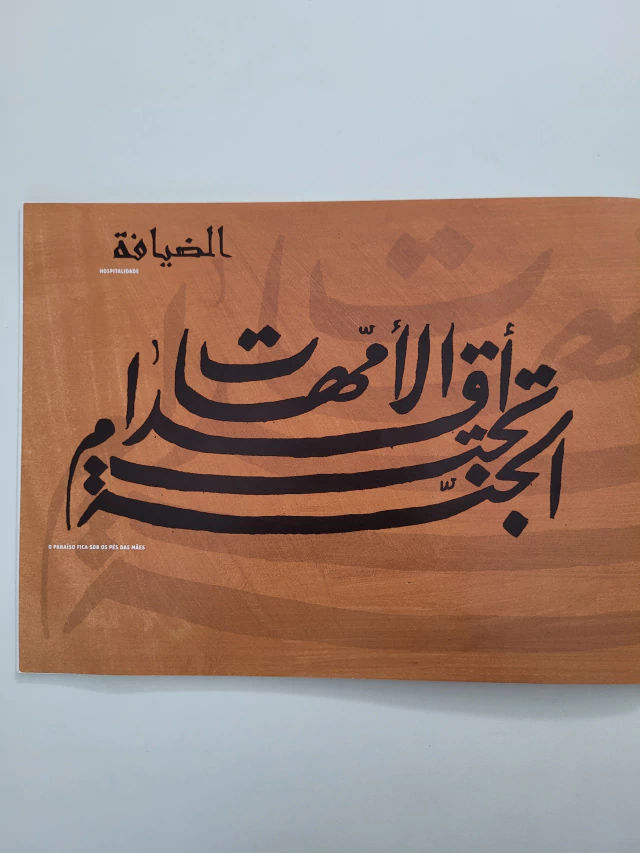 الضيافة
HOSPITALIDADE
الجنّة تحت أقدام الأمّهات
O PARAÍSO FICA SOB OS PÉS DAS MÃES